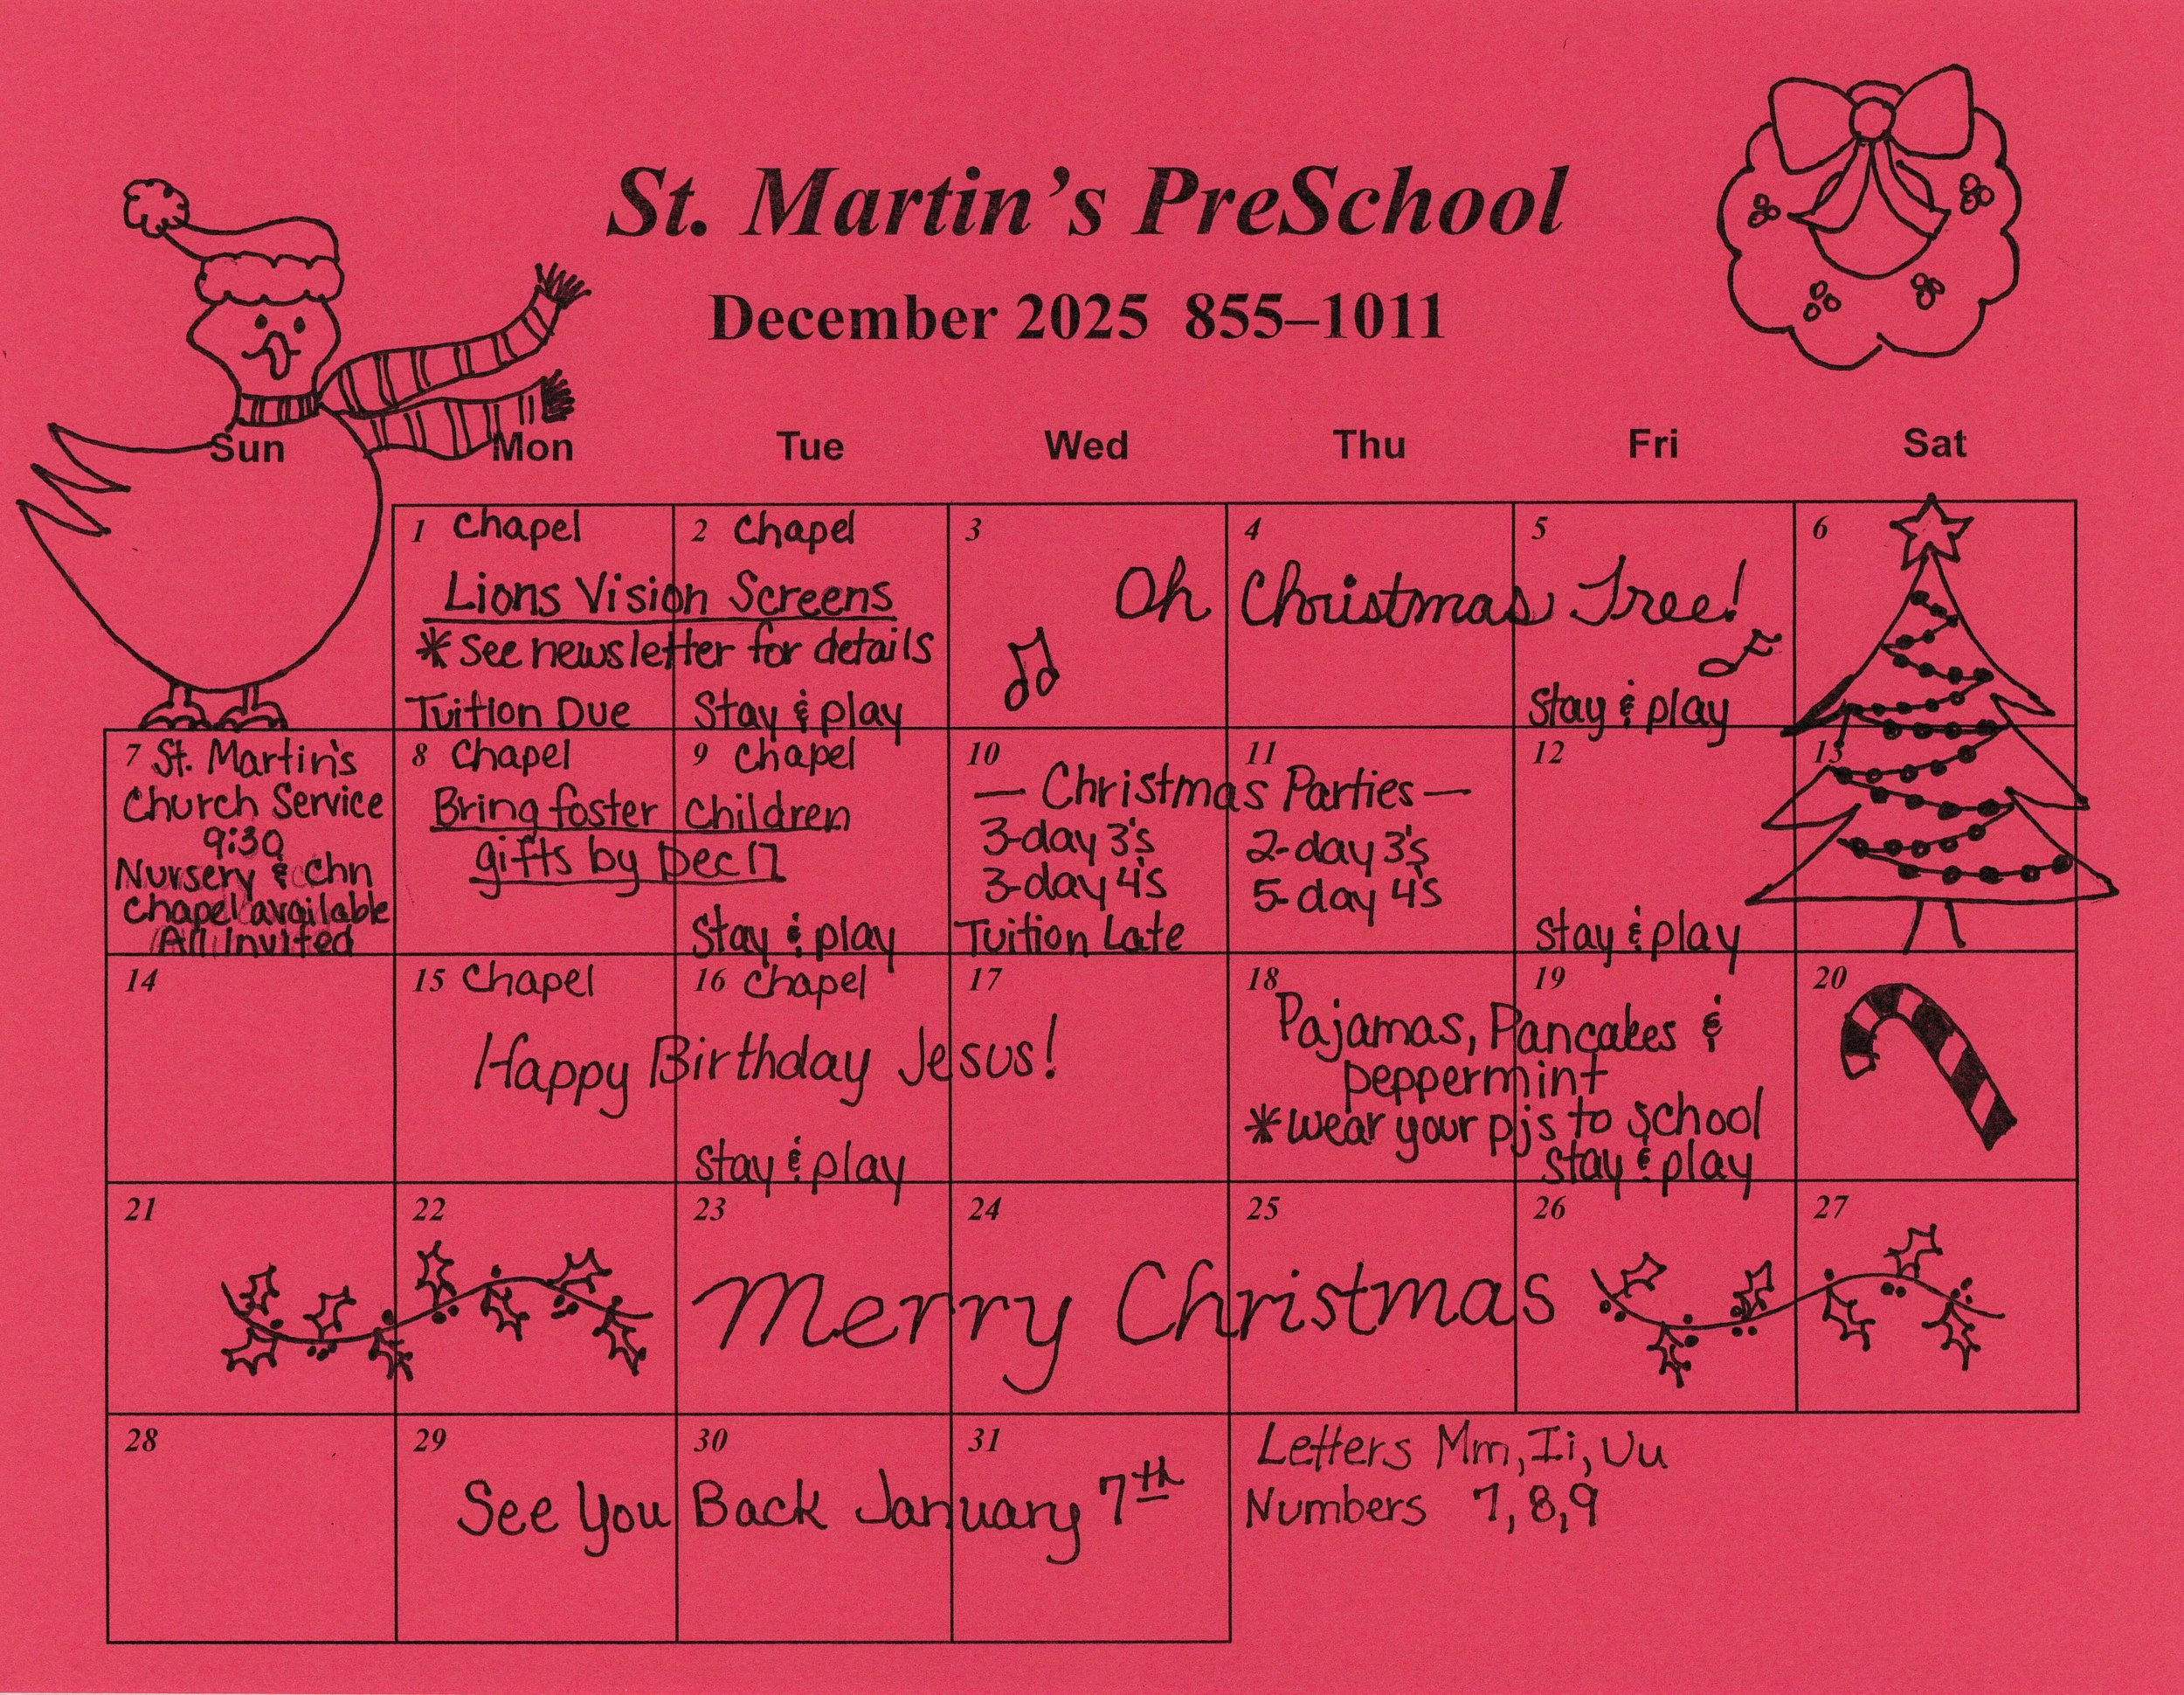 St. Martin's PreSchool
December 2025 855–1011
Sun Mon Tue Wed Thu Fri Sat
1 Chapel
2 Chapel
Lions Vision Screens
*See newsletter for details
Tuition Due
Stay & play
3
4
5
6
Oh Christmas Tree!
Stay & play
7 St. Martin's
Church Service
9:30
Nursery & Chn
Chapel available
All Invited
8 Chapel
9 Chapel
Bring foster children
gifts by Dec 17
Stay & play
10
11
— Christmas Parties —
3-day 3's
3-day 4's
Tuition Late
2-day 3's
5-day 4's
12
Stay & play
13
14
15 Chapel
16 Chapel
17
Happy Birthday Jesus!
Stay & play
18
19
Pajamas, Pancakes &
peppermint
*wear your pjs to school
Stay & play
20
21
22
23
24
25
26
27
Merry Christmas
28
29
30
31
See You Back January 7th
Letters Mm, Ii, Uu
Numbers 7,8,9